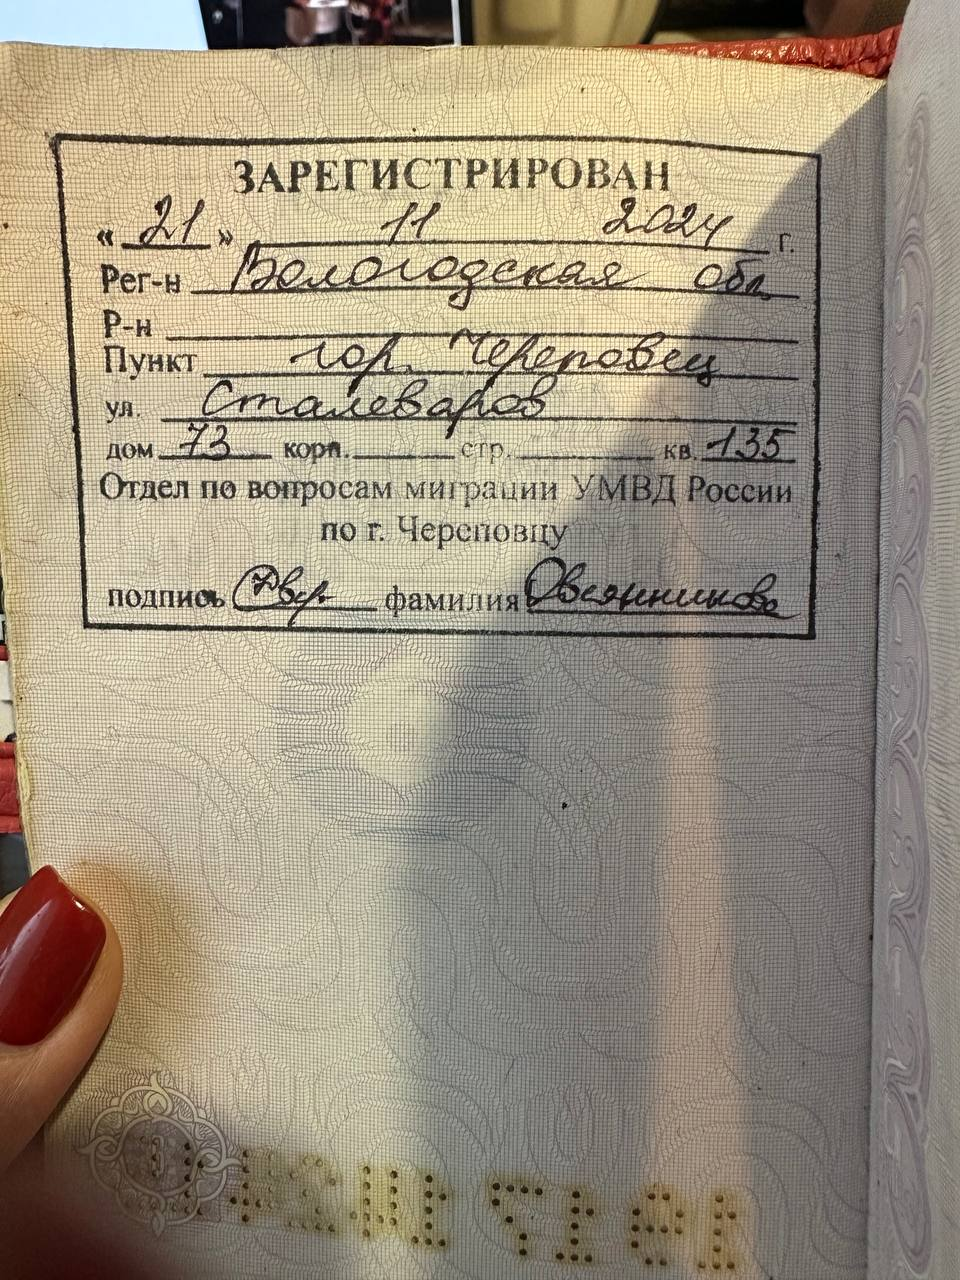 ЗАРЕГИСТРИРОВАН
« 21 » 11 2024 г.
Рег-н Вологодская обл
Р-н
Пункт гор. Череповец
ул. Сталеваров
дом 73 корп. стр. кв. 135
Отдел по вопросам миграции УМВД России
по г. Череповцу
подпись фамилия Овсянникова